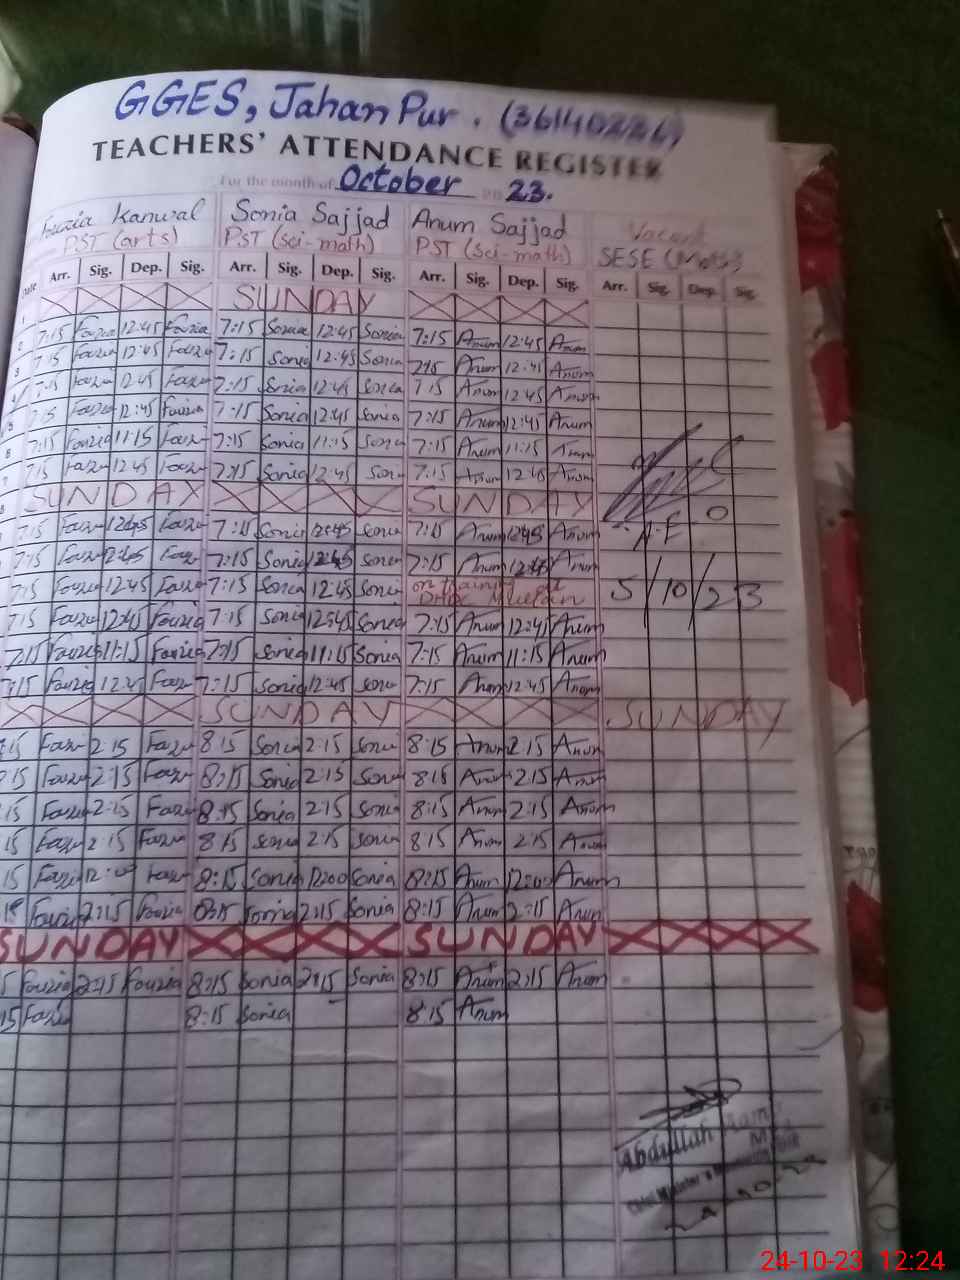 GGES, Jahan Pur. (36140226)
TEACHERS' ATTENDANCE REGISTER
For the month of October 23.
Fouzia Kanwal Sonia Sajjad Anum Sajjad Vacant
PST (arts) PST (sci-math) PST (sci-math) SESE (Math)
Date Arr. Sig. Dep. Sig. Arr. Sig. Dep. Sig. Arr. Sig. Dep. Sig. Arr. Sig. Dep. Sig.
1 SUNDAY
2 7:15 Fouzia 12:45 Fouzia 7:15 Sonia 12:45 Sonia 7:15 Anum 12:45 Anum
3 7:15 Fouzia 12:45 Fouzia 7:15 Sonia 12:45 Sonia 7:15 Anum 12:45 Anum
4 7:15 Fouzia 12:45 Fouzia 7:15 Sonia 12:45 Sonia 7:15 Anum 12:45 Anum
5 7:15 Fouzia 12:45 Fouzia 7:15 Sonia 12:45 Sonia 7:15 Anum 12:45 Anum
6 7:15 Fouzia 11:15 Fouzia 7:15 Sonia 11:15 Sonia 7:15 Anum 11:15 Anum
7 7:15 Fouzia 12:45 Fouzia 7:15 Sonia 12:45 Sonia 7:15 Anum 12:45 Anum
8 SUNDAY SUNDAY
7:15 Fouzia 12:45 Fouzia 7:15 Sonia 12:45 Sonia 7:15 Anum 12:45 Anum
7:15 Fouzia 12:45 Fouzia 7:15 Sonia 12:45 Sonia 7:15 Anum 12:45 Anum
7:15 Fouzia 12:45 Fouzia 7:15 Sonia 12:45 Sonia on training at 5/10/23
Multan
7:15 Fouzia 12:45 Fouzia 7:15 Sonia 12:45 Sonia 7:15 Anum 12:45 Anum
7:15 Fouzia 11:15 Fouzia 7:15 Sonia 11:15 Sonia 7:15 Anum 11:15 Anum
7:15 Fouzia 12:45 Fouzia 7:15 Sonia 12:45 Sonia 7:15 Anum 12:45 Anum
SUNDAY SUNDAY
:15 Fouzia 2:15 Fouzia 8:15 Sonia 2:15 Sonia 8:15 Anum 2:15 Anum
:15 Fouzia 2:15 Fouzia 8:15 Sonia 2:15 Sonia 8:15 Anum 2:15 Anum
:15 Fouzia 2:15 Fouzia 8:15 Sonia 2:15 Sonia 8:15 Anum 2:15 Anum
15 Fouzia 2:15 Fouzia 8:15 Sonia 2:15 Sonia 8:15 Anum 2:15 Anum
15 Fouzia 12:00 Fouzia 8:15 Sonia 12:00 Sonia 8:15 Anum 12:00 Anum
15 Fouzia 2:15 Fouzia 8:15 Sonia 2:15 Sonia 8:15 Anum 2:15 Anum
SUNDAY SUNDAY
5 Fouzia 2:15 Fouzia 8:15 Sonia 2:15 Sonia 8:15 Anum 2:15 Anum
15 Fouzia 8:15 Sonia 8:15 Anum
Abdullah
Chief Minister's Monitoring
24-10-23 12:24